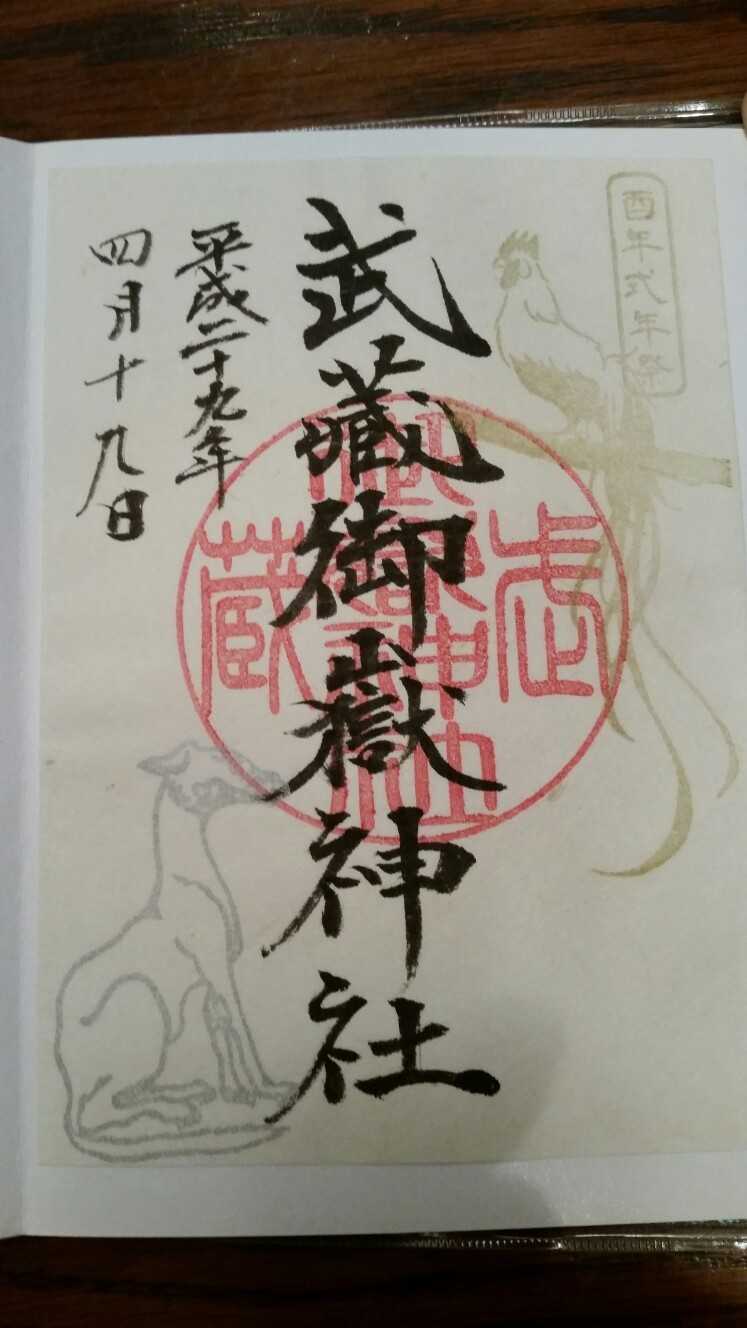 酉年式年祭
武藏御嶽神社
武蔵御嶽神社
平成二十九年
四月十九日